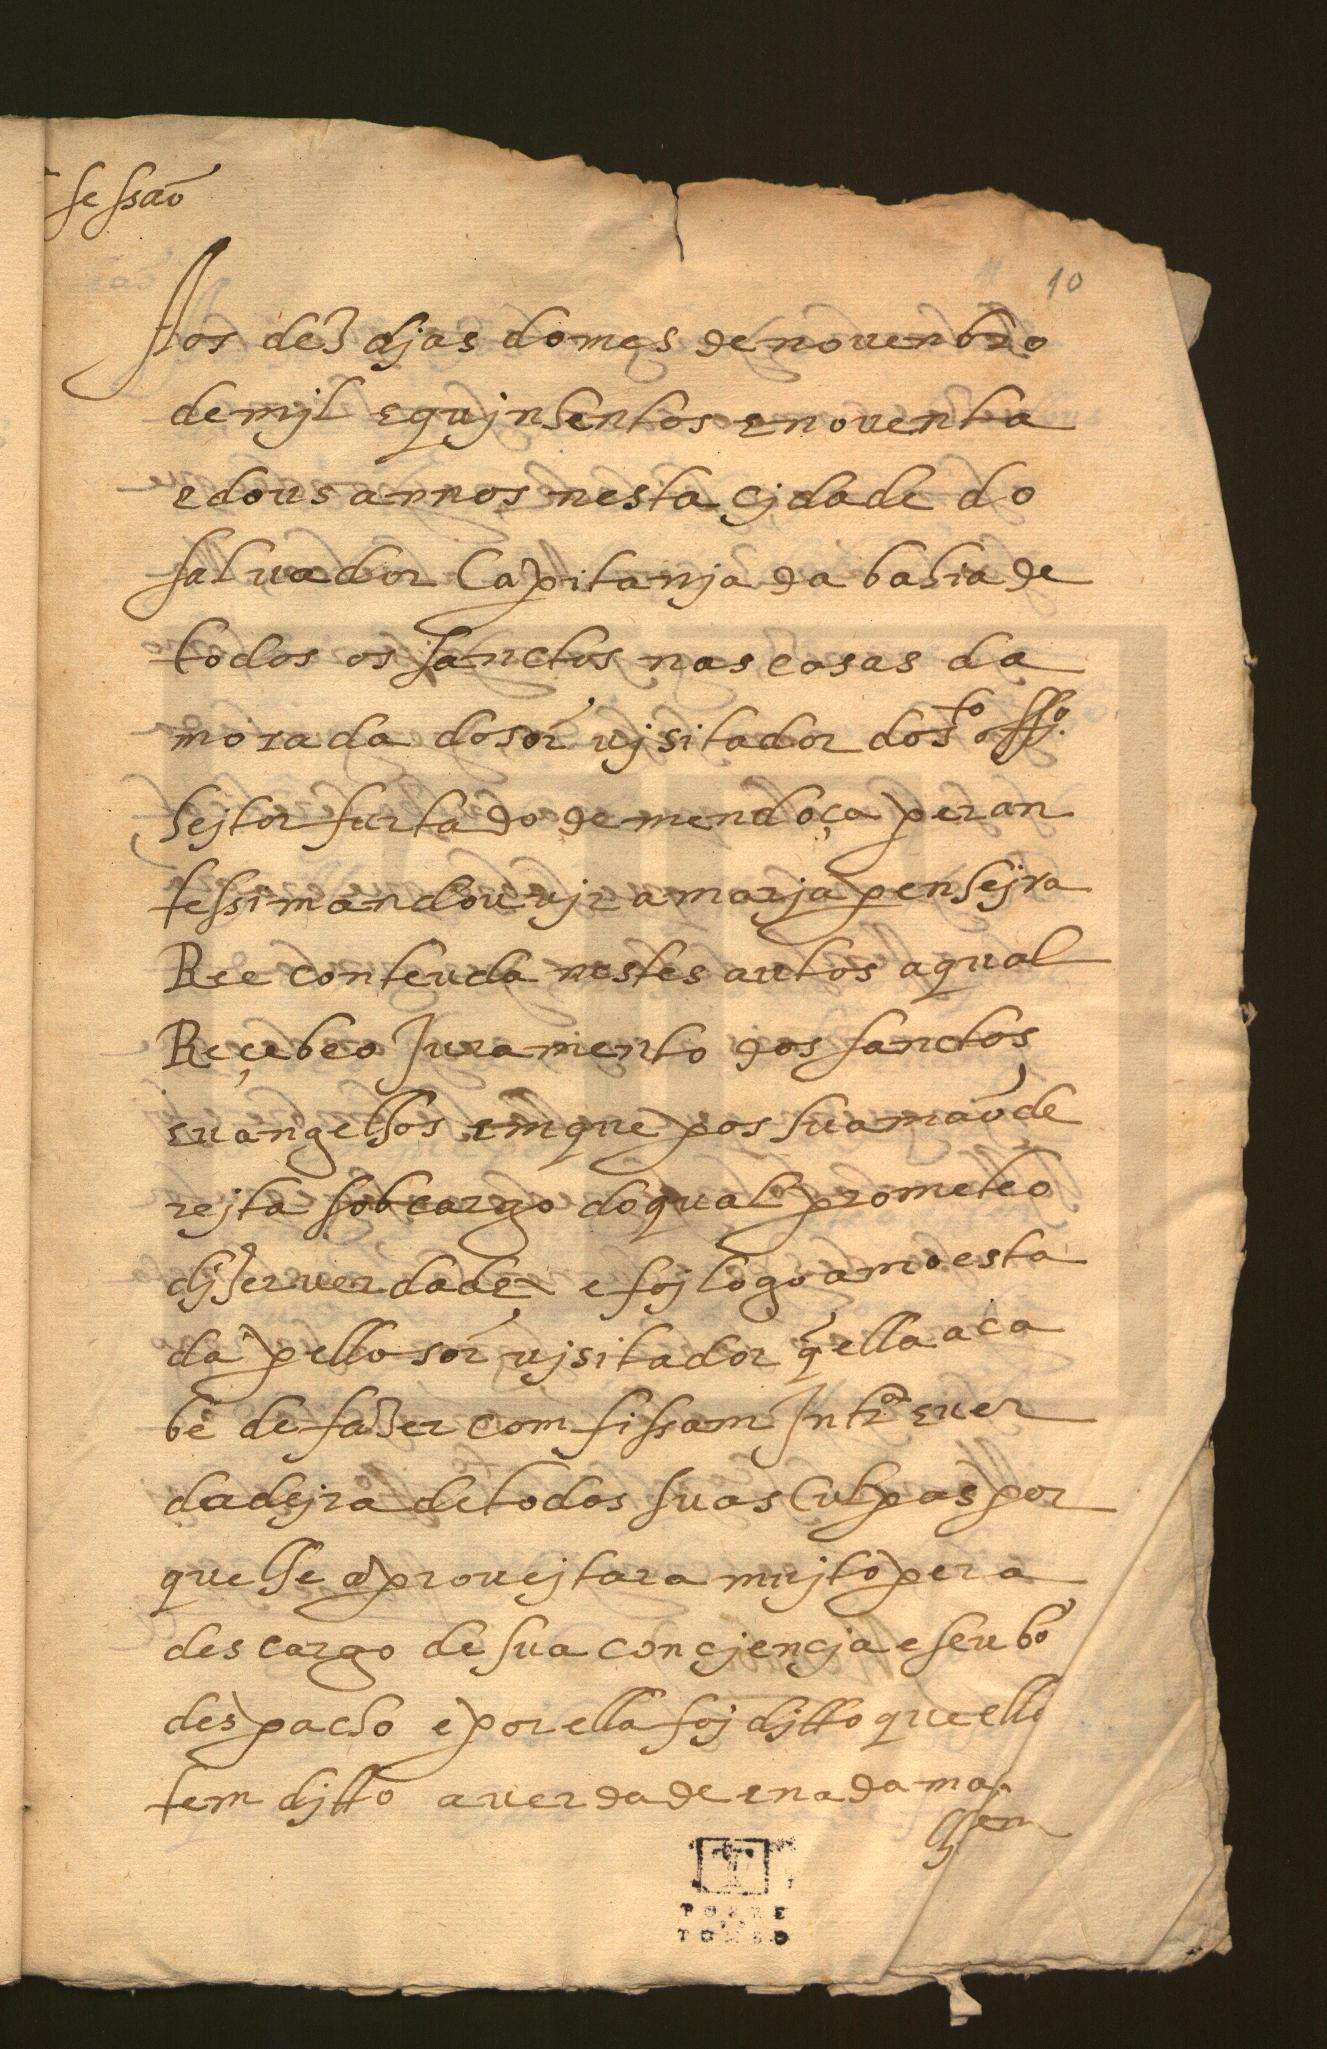 sessão
10
Aos dez djas do mes de novenbro
de mjl e qujnhentos e noventa
e dous annos nesta çjdade do
salvador Capitanja da bahia de
todos os sanctos nas casas da
morada do sor vjsitador do sto offo.
hejtor furtado de mendoça peran
te ssi mandou vjr a marja penhejra
Ree conteuda nestes autos a qual
Reçebeo Juramento dos sanctos
evangelhos em que pos sua mão de
rejta sob cargo do qual prometeo
djzer verdade e foj logo amoesta
da pello sor vjsitador q̃ ella aca
be de fazer comfissam Intra e ver
dadejra de todas suas Culpas por
que lhe aprovejtara mujto pera
descargo de sua conçjençja e seu bõ
despacho e por ella foj djtto que ella
tem djtto a verdade e nada mais
tem
TORRE
TOMBO